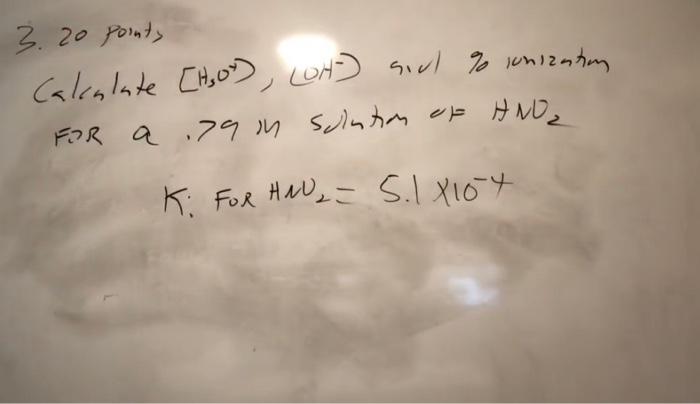 3. 20 Points
Calculate [H3O+), [OH-) and % ionization
FOR a .79 M solution OF HNO2
Ki FOR HNO2 = 5.1 X10-4